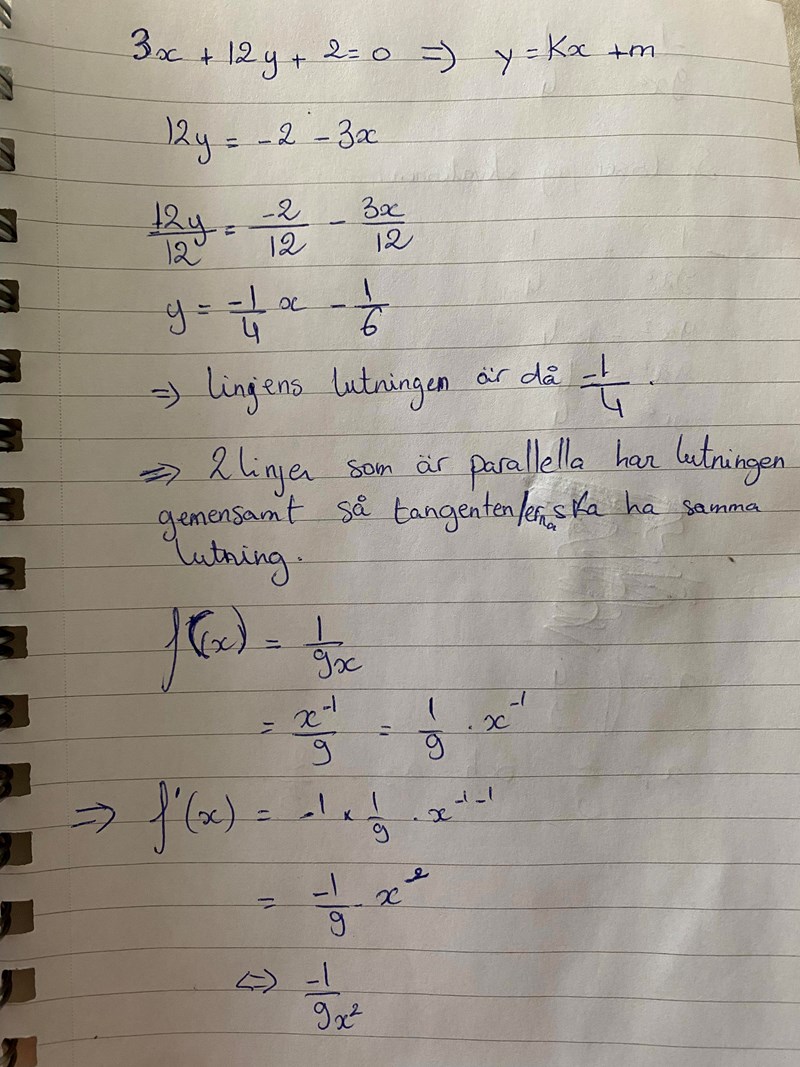 3x + 12y + 2 = 0 => y = Kx + m
12y = -2 - 3x
12y/12 = -2/12 - 3x/12
y = -1/4 x - 1/6
=> linjens lutningen är då -1/4.
=> 2 linjer som är parallella har lutningen
gemensamt så tangenten/erna ska ha samma
lutning.
f(x) = 1/9x
= x⁻¹/9 = 1/9 · x⁻¹
=> f'(x) = -1 × 1/9 · x⁻¹⁻¹
= -1/9 · x⁻²
<=> -1/9x²